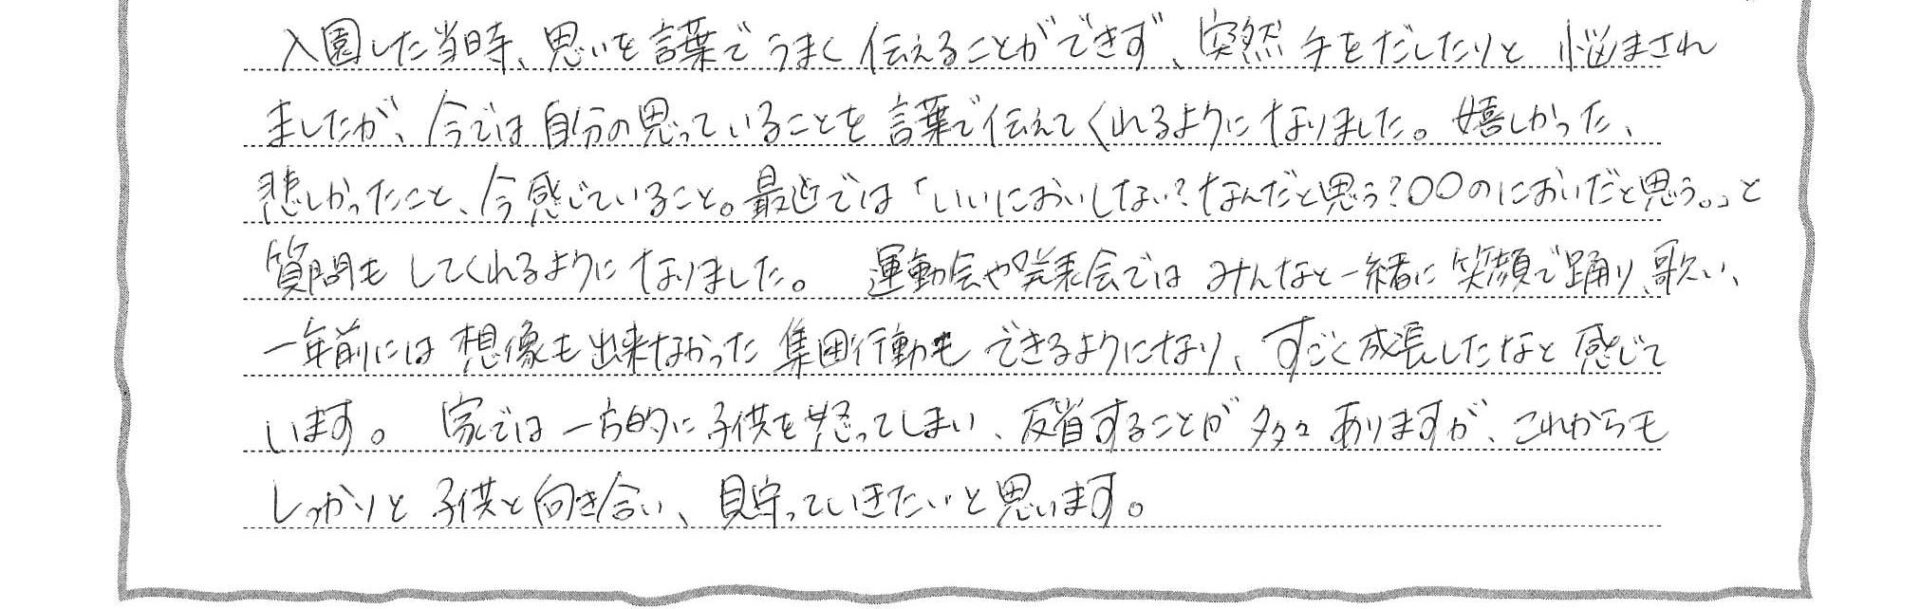 入園した当時、思いを言葉でうまく伝えることができず、突然手をだしたりと悩まされ
ましたが、今では自分の思っていることを言葉で伝えてくれるようになりました。嬉しかった、
悲しかったこと、今感じていること。最近では「いいにおいしない？なんだと思う？〇〇のにおいだと思う。」と
質問もしてくれるようになりました。 運動会や発表会ではみんなと一緒に笑顔で踊り、歌い、
一年前には想像も出来なかった集団行動もできるようになり、すごく成長したなと感じて
います。 家では一方的に子供を怒ってしまい、反省することが多々ありますが、これからも
しっかりと子供と向き合い、見守っていきたいと思います。